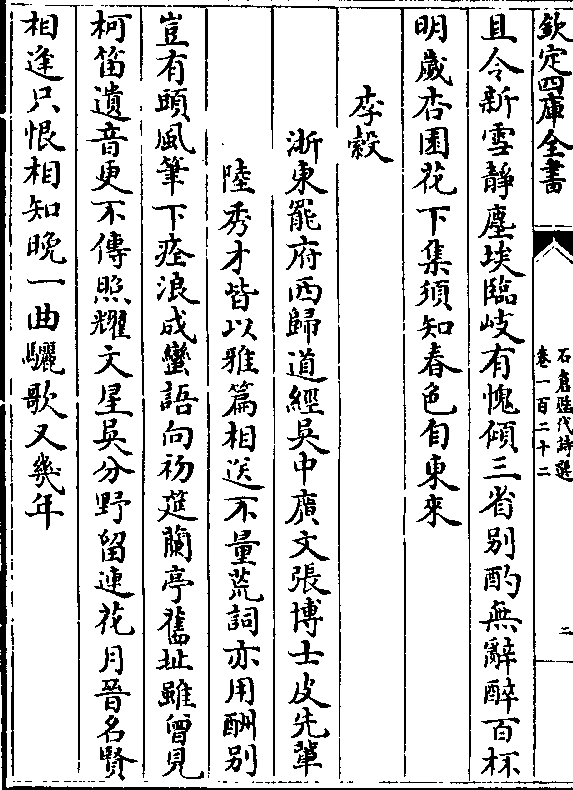 欽定四庫全書
石倉歷代詩選
卷一百二十二
二
且令新雪靜塵埃臨岐有愧傾三省别酌無辭醉百杯
明歲杏園花下集須知春色自東來
李縠
浙東罷府西歸道經吳中廣文張博士皮先輩
陸秀才皆以雅篇相送不量荒詞亦用酬别
豈有頭風筆下痊浪成蠻語向初筵蘭亭舊址雖曾見
柯笛遺音更不傳照耀文星吳分野留連花月晉名賢
相逢只恨相知晚一曲驪歌又幾年